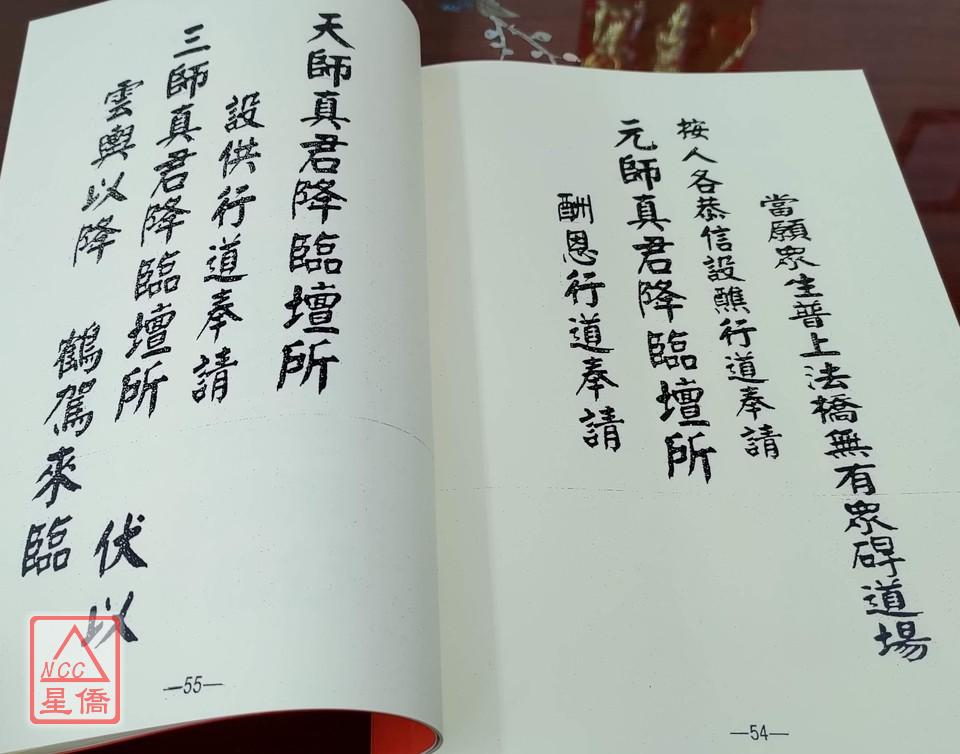 當願眾生普上法橋無有眾碍道場
按人各恭信設醮行道奉請
元師真君降臨壇所
酬恩行道奉請
—54—
天師真君降臨壇所
設供行道奉請
三師真君降臨壇所 伏以
雲輿以降 鶴駕來臨
—55—
NCC
星僑